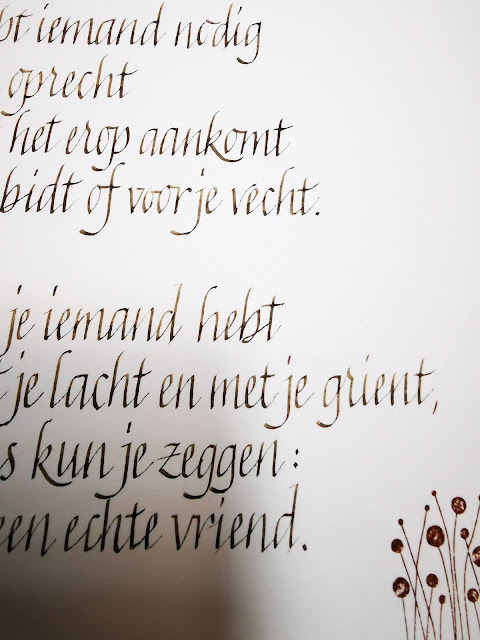 bt iemand nodig
oprecht
het erop aankomt
bidt of voor je vecht.
je iemand hebt
t je lacht en met je grient,
s kun je zeggen:
een echte vriend.